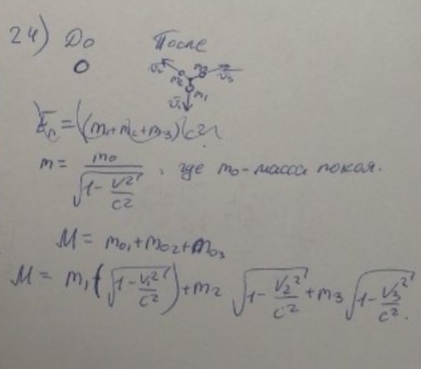 24) До После
m₂ m₃
v̄₂ v̄₃
m₁
v̄₁
Eп = (m₁+m₂+m₃)c².
m = m₀ / √(1 - v²/c²), где m₀ - масса покоя.
M = m₀₁ + m₀₂ + m₀₃
M = m₁(√(1 - v₁²/c²)) + m₂ √(1 - v₂²/c²) + m₃ √(1 - v₃²/c²).